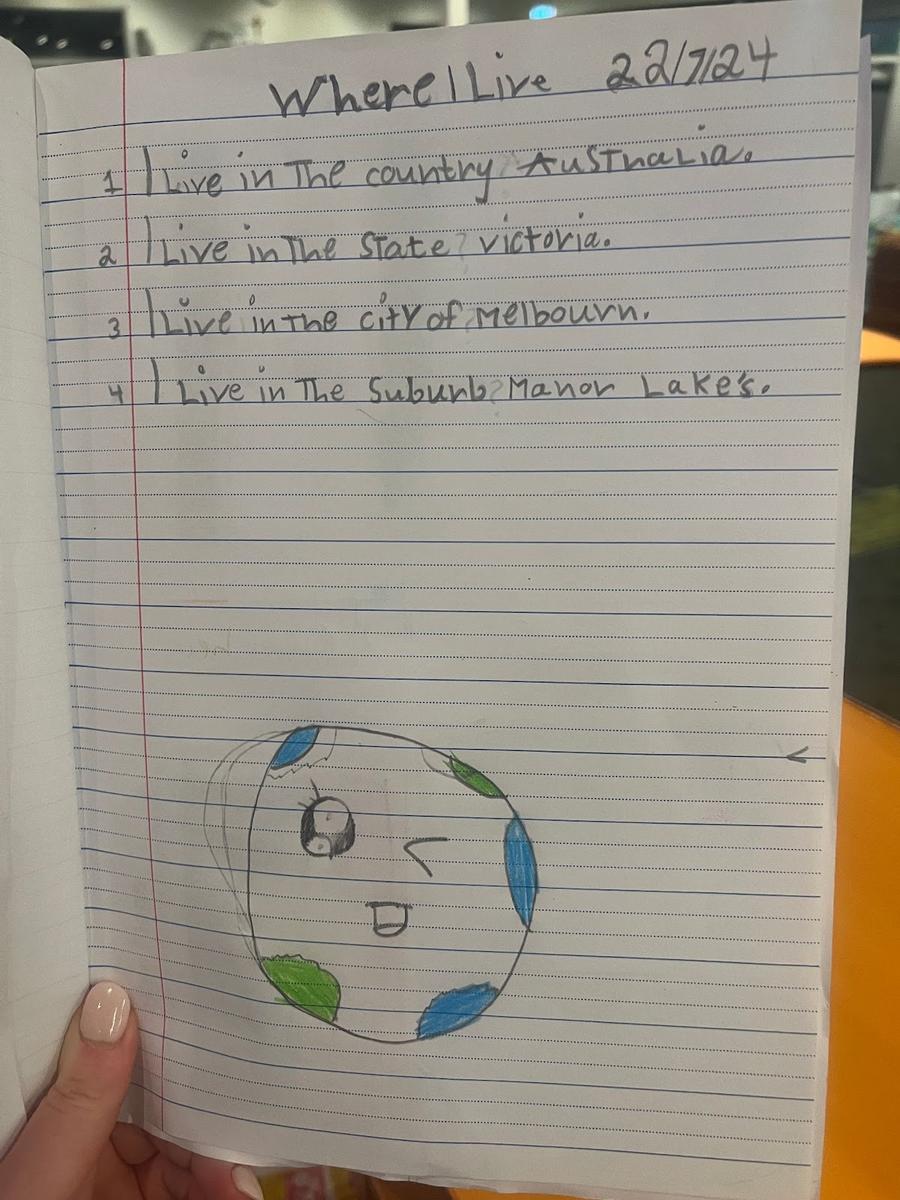 Where I Live 22/7/24
1 I Live in The country Australia.
2 I Live in The State? victoria.
3 I Live in the city of Melbourn.
4 I Live in The Suburb? Manor Lake's.